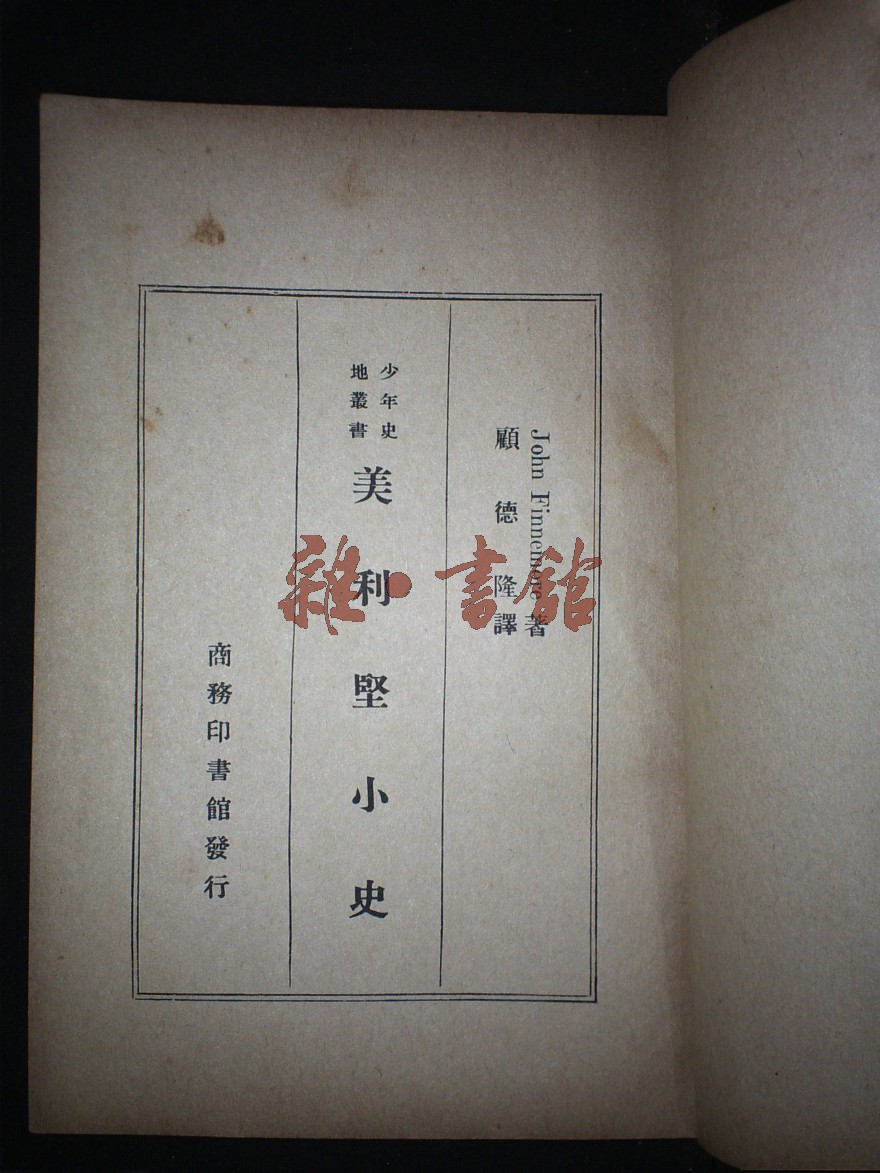 John Finnemore 著
顧德隆譯
少年史
地叢書
美利堅小史
商務印書館發行
雜·書館